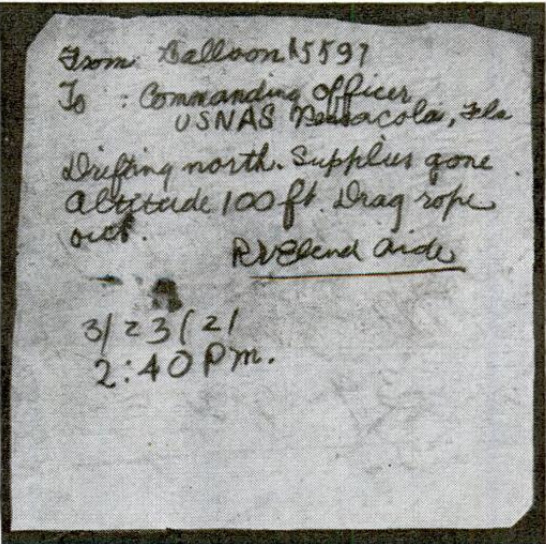 From Balloon A5597
To : Commanding Officer
USNAS Pensacola, Fla
Drifting north. Supplies gone
Altitude 100 ft. Drag rope
out.
Send aide
3/23/21
2:40 Pm.